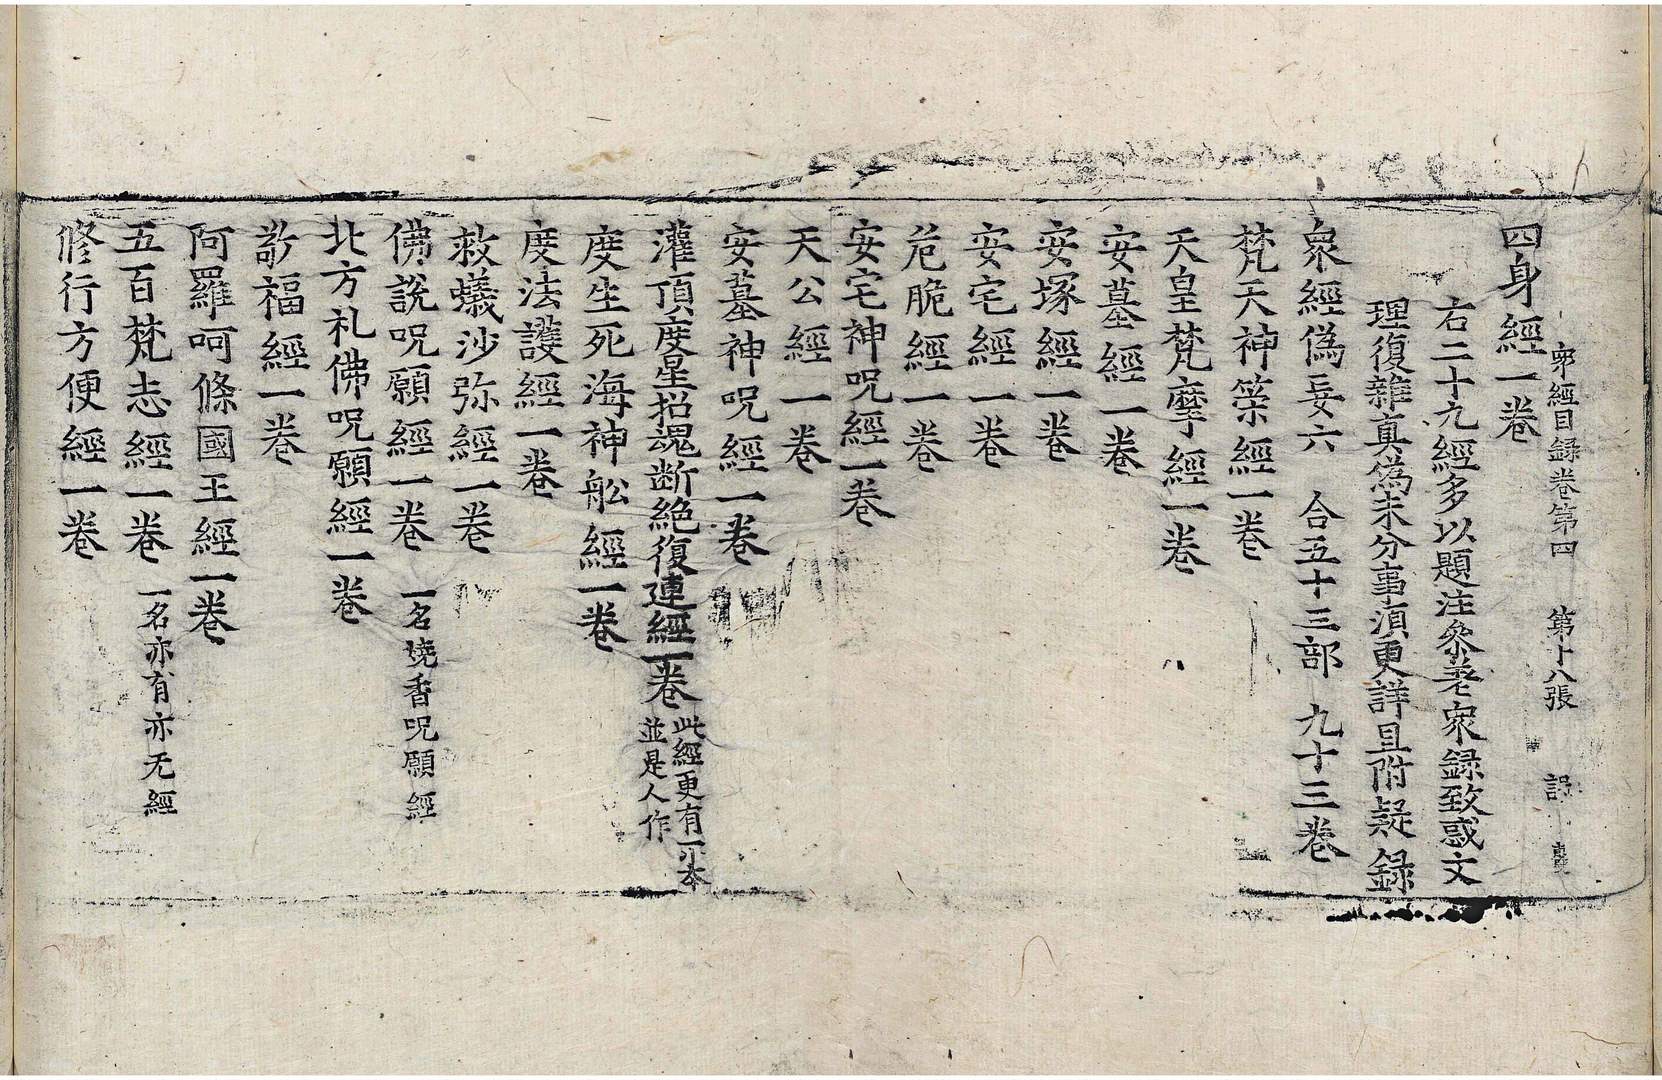 衆經目録卷第四 第十八張
四身經一卷
右二十九經多以題注參差衆録致惑文
理復雜真偽未分事須更詳且附疑録
衆經偽妄六 合五十三部 九十三卷
梵天神策經一卷
天皇梵摩經一卷
安墓經一卷
安塚經一卷
安宅經一卷
危脆經一卷
安宅神呪經一卷
天公經一卷
安墓神呪經一卷
灌頂度星招魂断絶復連經一卷 此經更有一小本
並是人作
度生死海神舩經一卷
度法護經一卷
救蟻沙弥經一卷
佛說呪願經一卷 一名燒香呪願經
北方礼佛呪願經一卷
敬福經一卷
阿羅呵條國王經一卷
五百梵志經一卷 一名亦有亦无經
修行方便經一卷